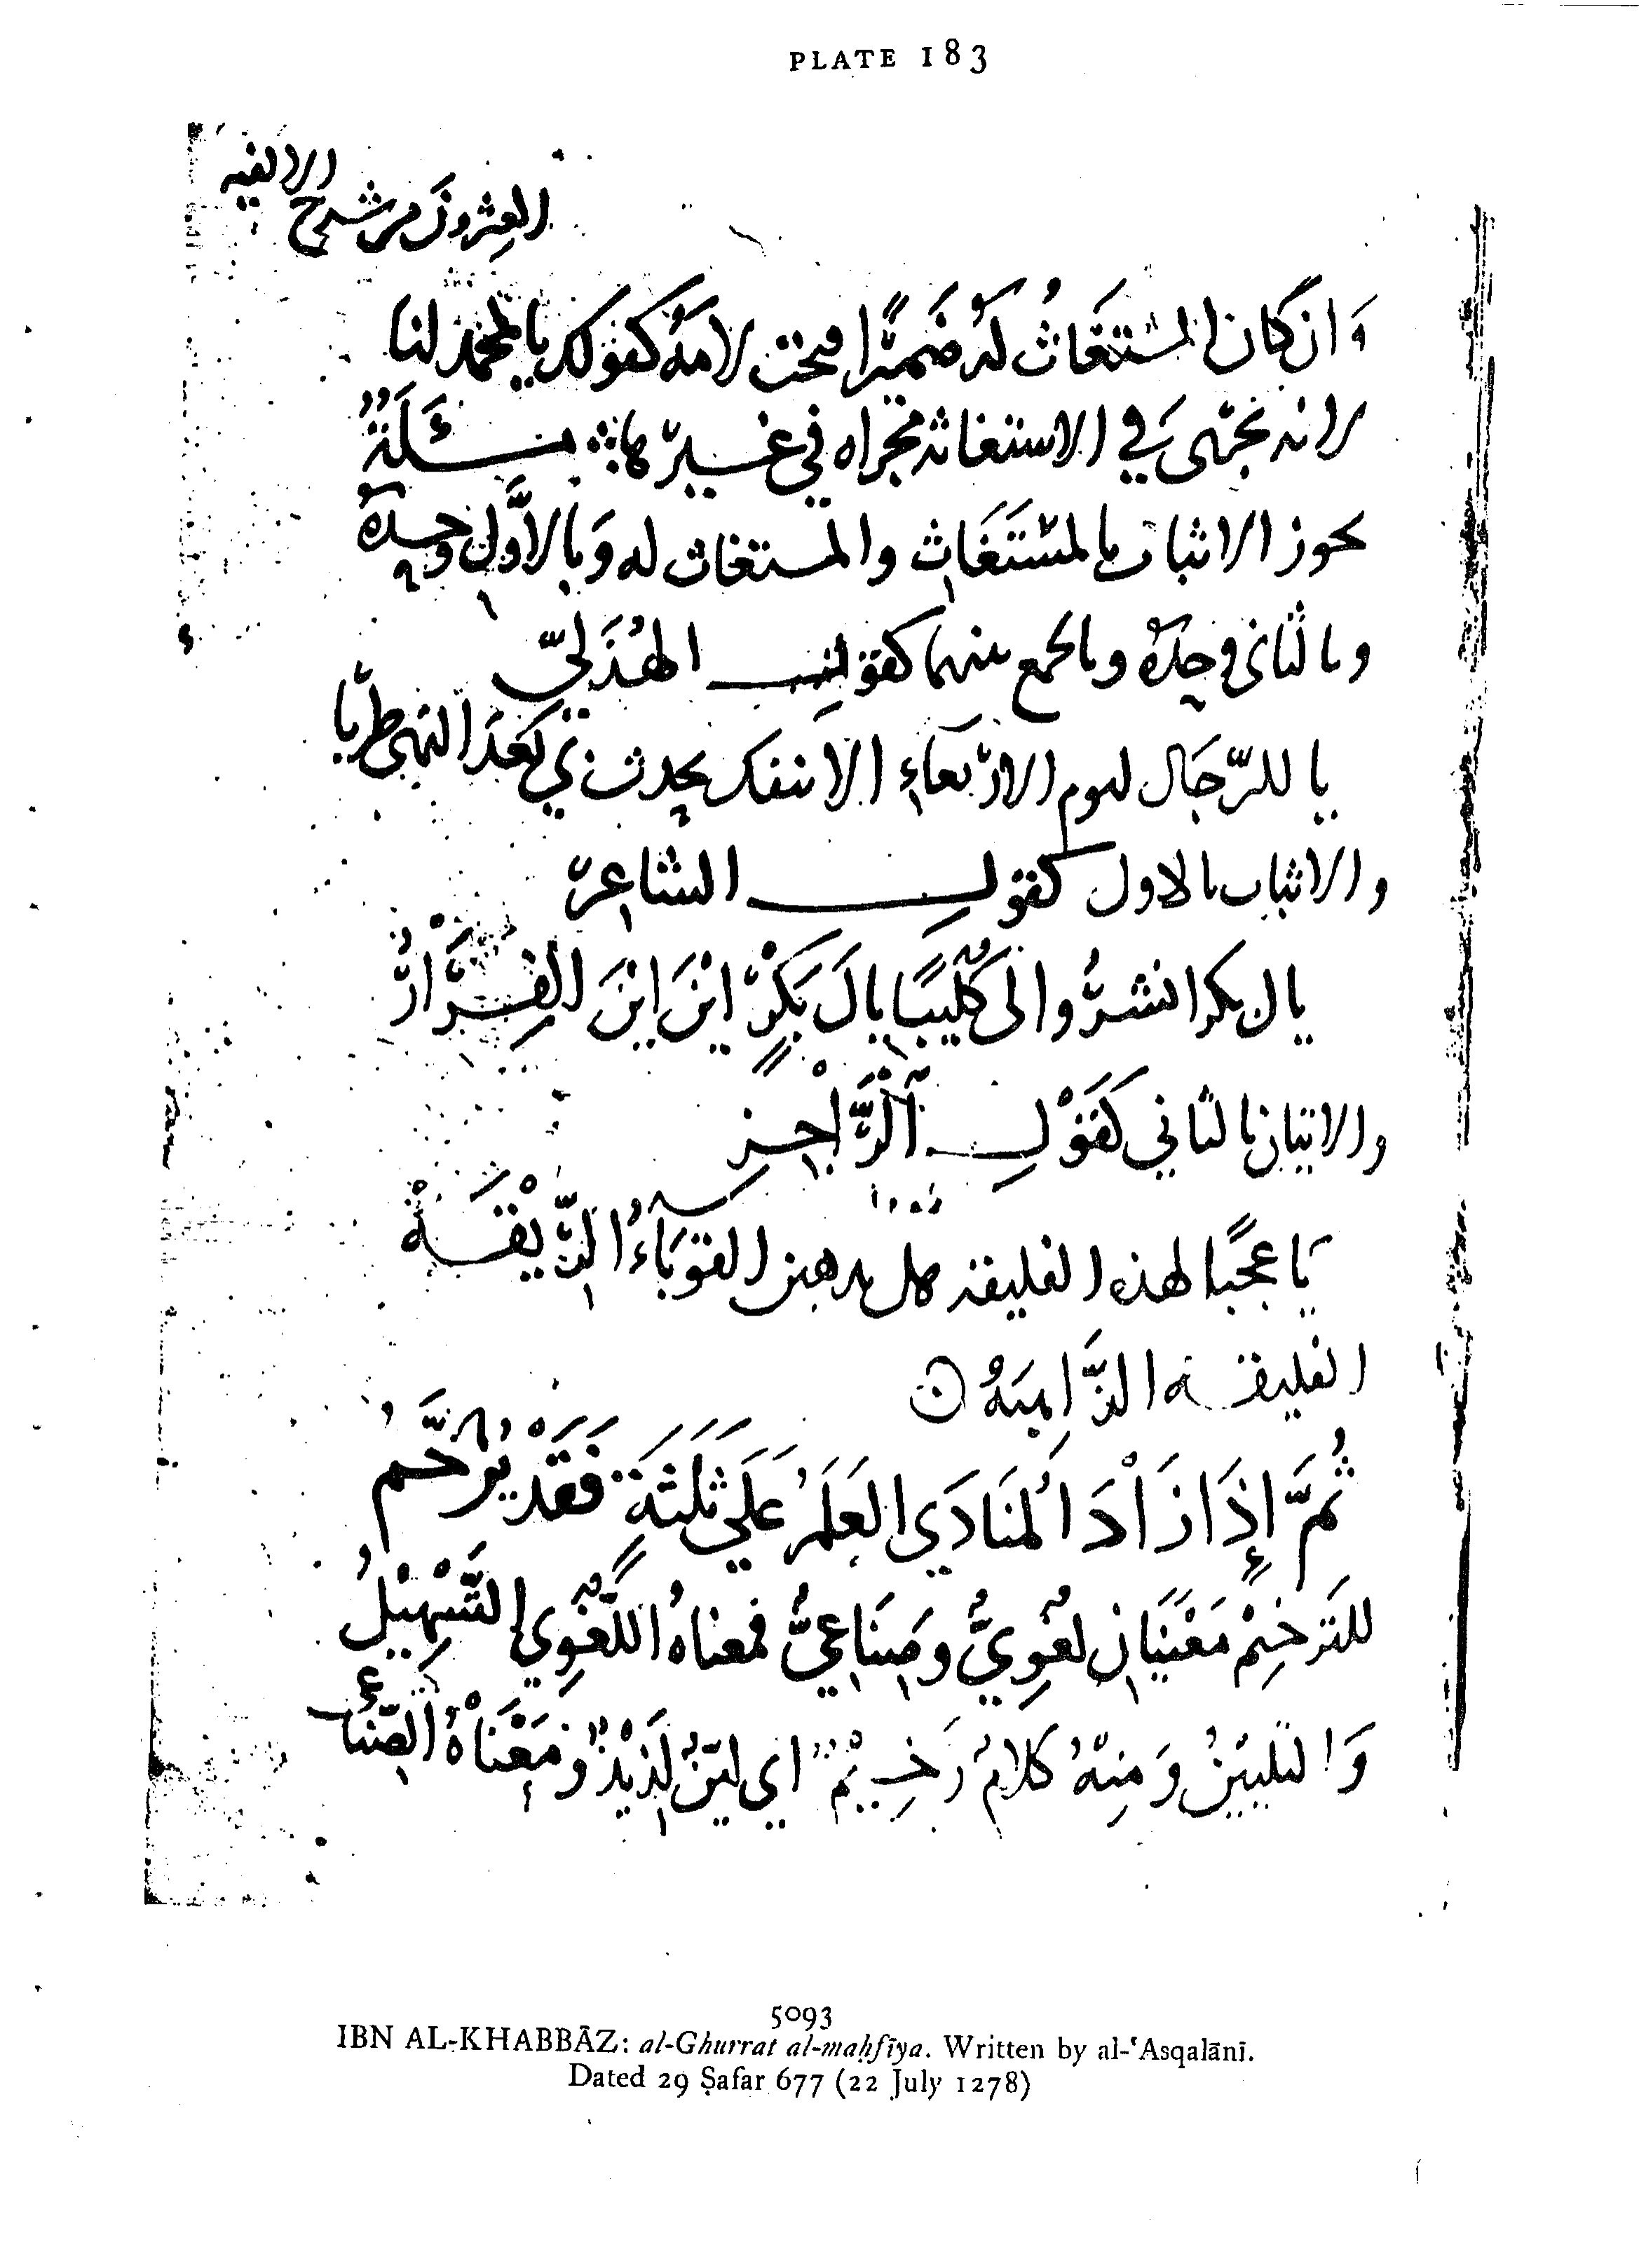 PLATE 183
العشرون من شرح الالفيه
وَان كان المستغَاثُ لَهُ ضَميرًا فتحت لامَهُ كقولك يا لمحمد لنا
لانه يجرى في الاستغاثة مجراه في غيرها مسئلَةٌ
يجوز الاتيان بالمسْتَغَاثِ والمستغاث له وَبالاوَّل وحدَهُ
وبالثانى وحدَهُ وبالجمع بينهما كقول الهُذَلِيّ
يا للرّجَال ليوم الاربعاءِ اما ينفك يحدث لي بَعْدَ النهى طربا
والاتيان بالاول كقول الشاعر
يال بكر انشرُوا لى كُلَيبًا يالَ بَكرٍ اَيْنَ اَيْنَ الفِرَارُ
والاتيان بالثاني كقَوْلِ الرَّاجِز
يَا عَجَبًا لهذه الفليقه هل تذهبن القوبَاءُ الرِّيْقَهْ
الفليقه الدَّاهِيَهُ
ثُمَّ إِذَا زَادَ المُنَادَي العَلَمُ عَلَي ثَلثَةٍ فَقَدْ يُرَخَّمُ
للتَرخِيْمِ مَعْنَيَانِ لغَوِيٌّ وصِنَاعِيٌّ فمعناهُ اللُّغَوِي التَّسْهِيْلُ
وَالتليِيْنُ وَمِنْهُ كَلامٌ رَخِيْمٌ اي ليّنٌ لَذِيْذٌ وَمَعْنَاهُ الصِّنَاعِي
5093
IBN AL-KHABBĀZ: al-Ghurrat al-maḥfīya. Written by al-ʿAsqalānī.
Dated 29 Ṣafar 677 (22 July 1278)